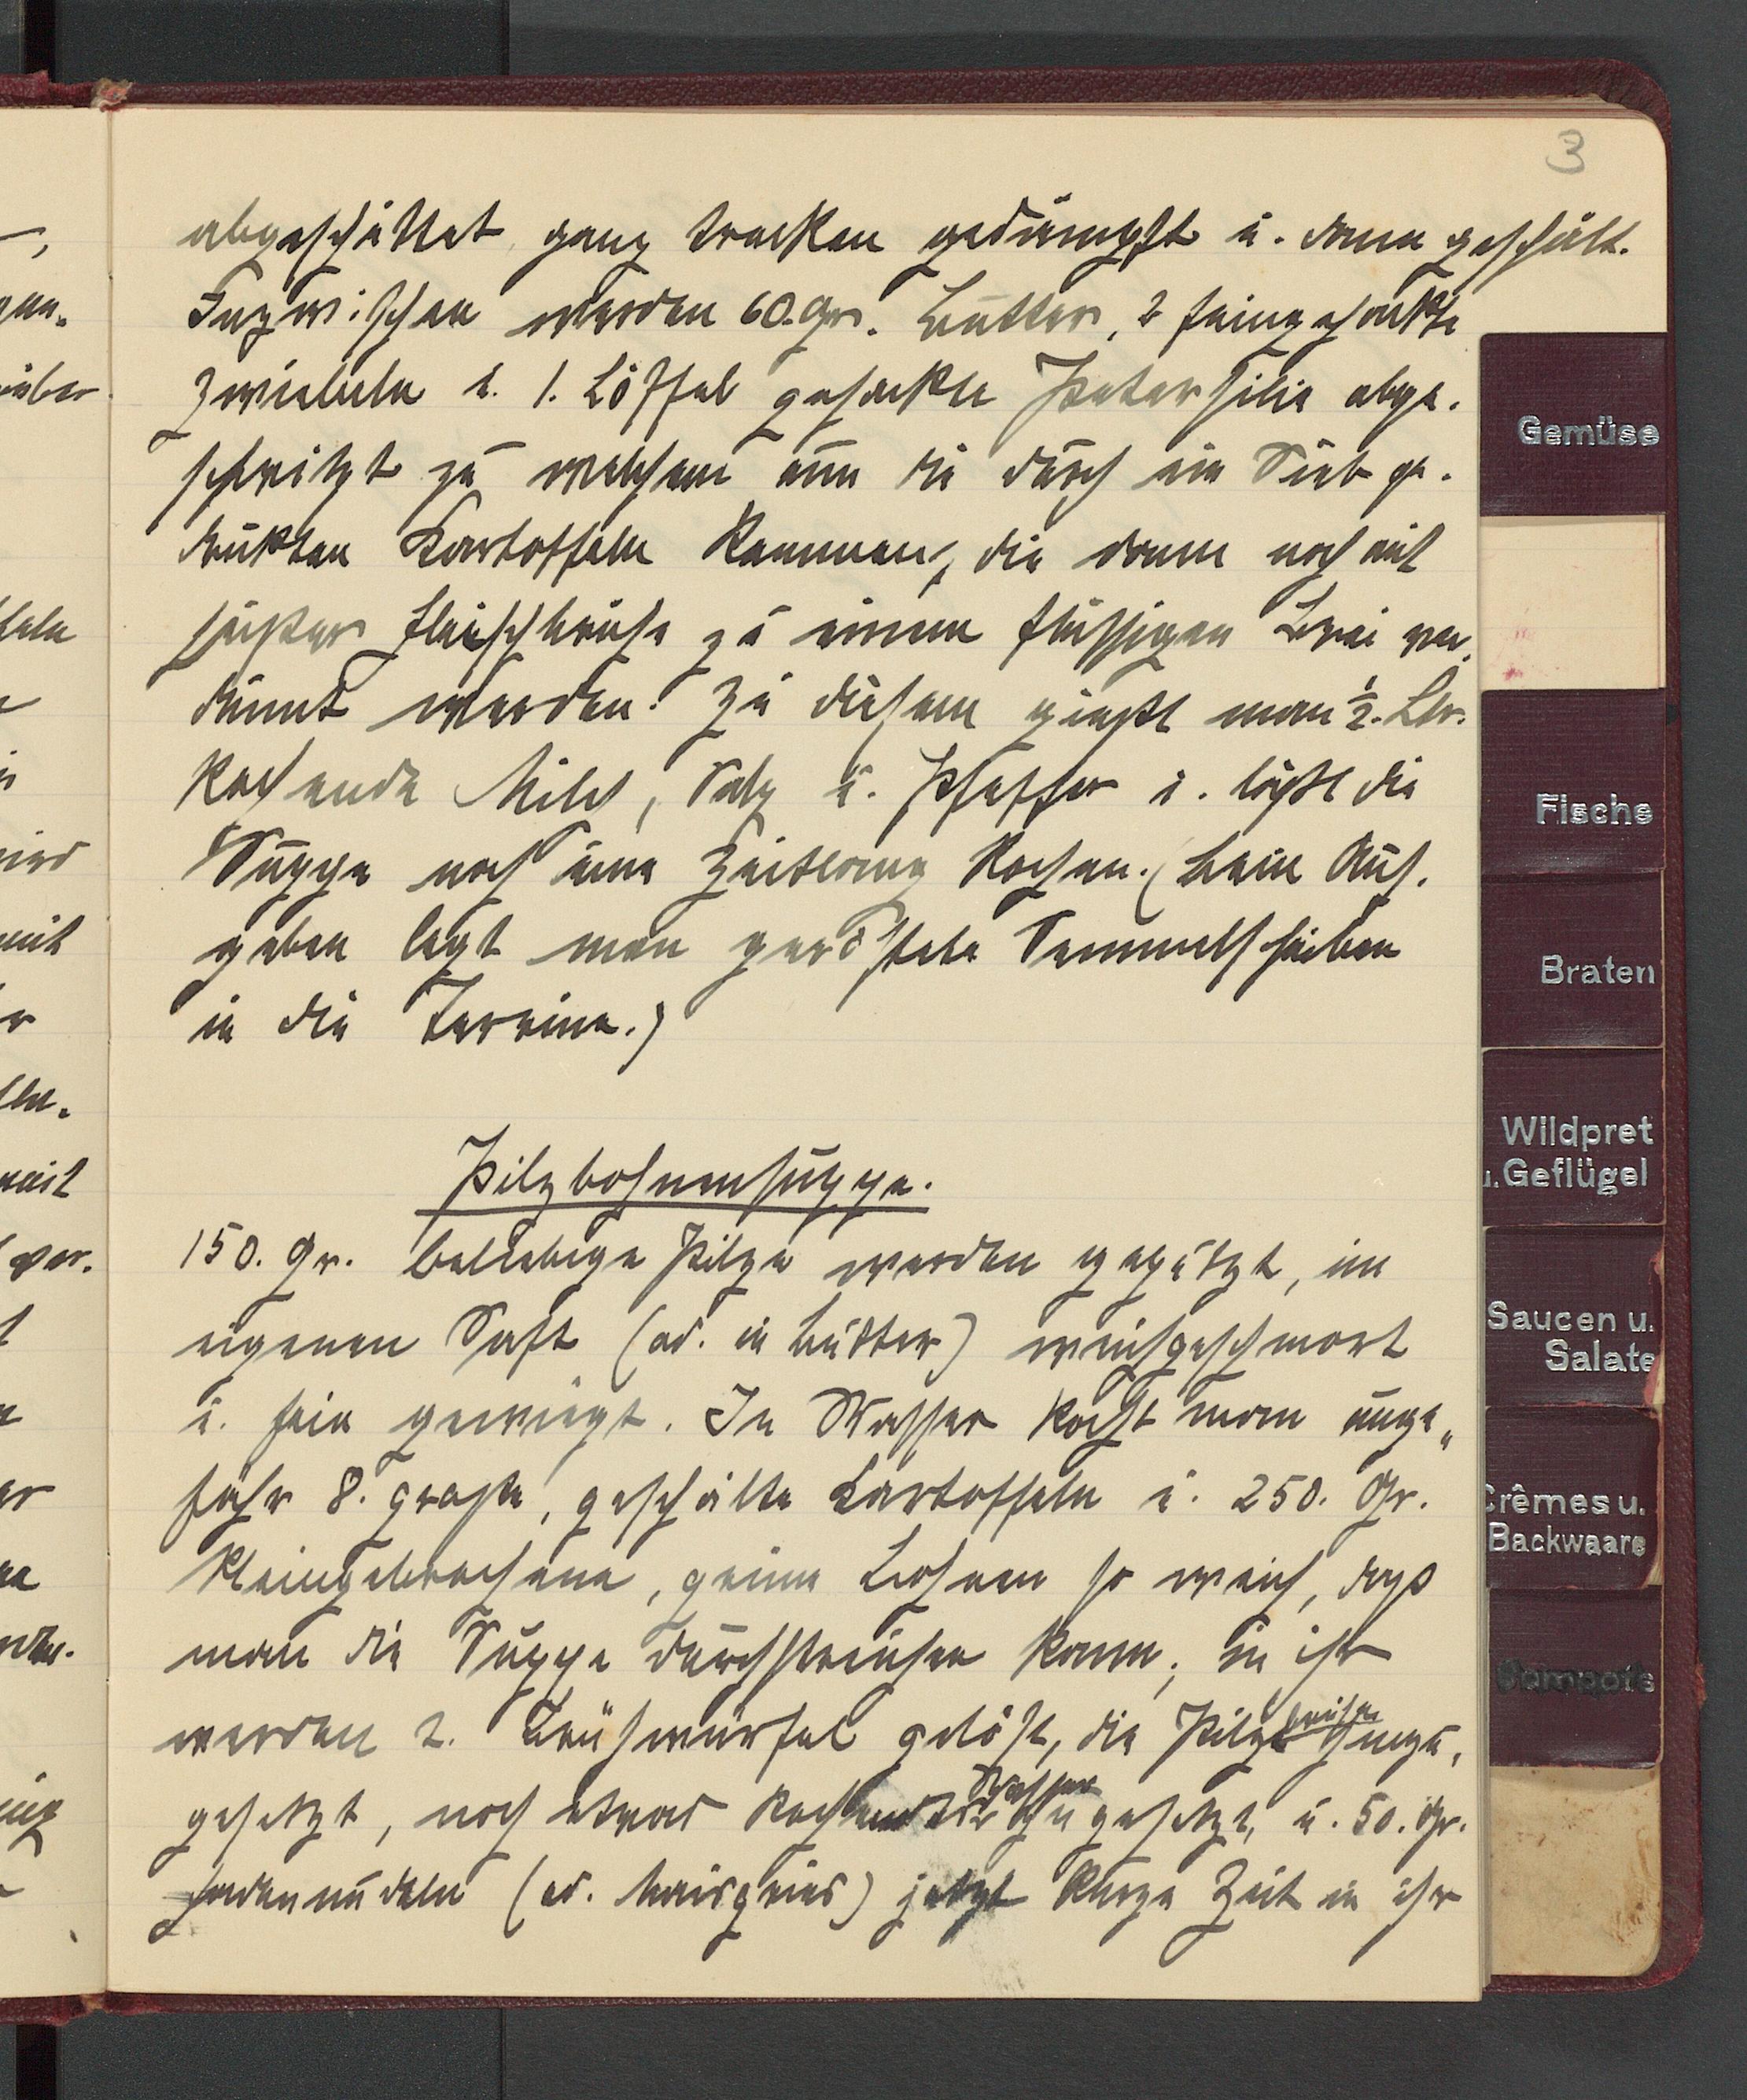 3
abgeschüttet, ganz trocken gedämpft u. dann geschält.
Inzwischen werden 60. gr. Butter, 2 feingehackte
Zwiebeln u. 1. Löffel gehackte Petersilie abge-
schwitzt zu welchem nun die durch ein Sieb ge-
drükten Kartoffeln kommen, die dann noch mit
Fleischbrühe zu einem flüssigen Brei ver-
dünnt werden. Zu diesem gießt man ½. Ltr.
kochende Milch, Salz u. Pfeffer u. läßt die
Suppe noch eine Zeitlang kochen. (Beim Auf-
geben legt man geröstete Semmelscheiben
in die Terrine.)
Pilzbohnensuppe.
150. gr. beliebige Pilze werden geputzt, im
eigenen Saft (od. in Butter) weichgeschmort
u. fein gewiegt. In Wasser kocht man unge-
fähr 8. große, geschälte Kartoffeln u. 250. Gr.
kleingebrochene, grüne Bohnen so weich, dass
man die Suppe durchstreichen kann; in ihr
werden 2. Brühwürfel gelöst, die Pilzbrühe hinzu-
gesetzt, noch etwas kochendes Wasser zugesetzt, u. 50. Gr.
Fadennudeln (od. Maisgries) jetzt kurze Zeit in ihr
Gemüse
Fische
Braten
Wildpret
u. Geflügel
Saucen u.
Salate
Crêmes u.
Backwaare
Compots